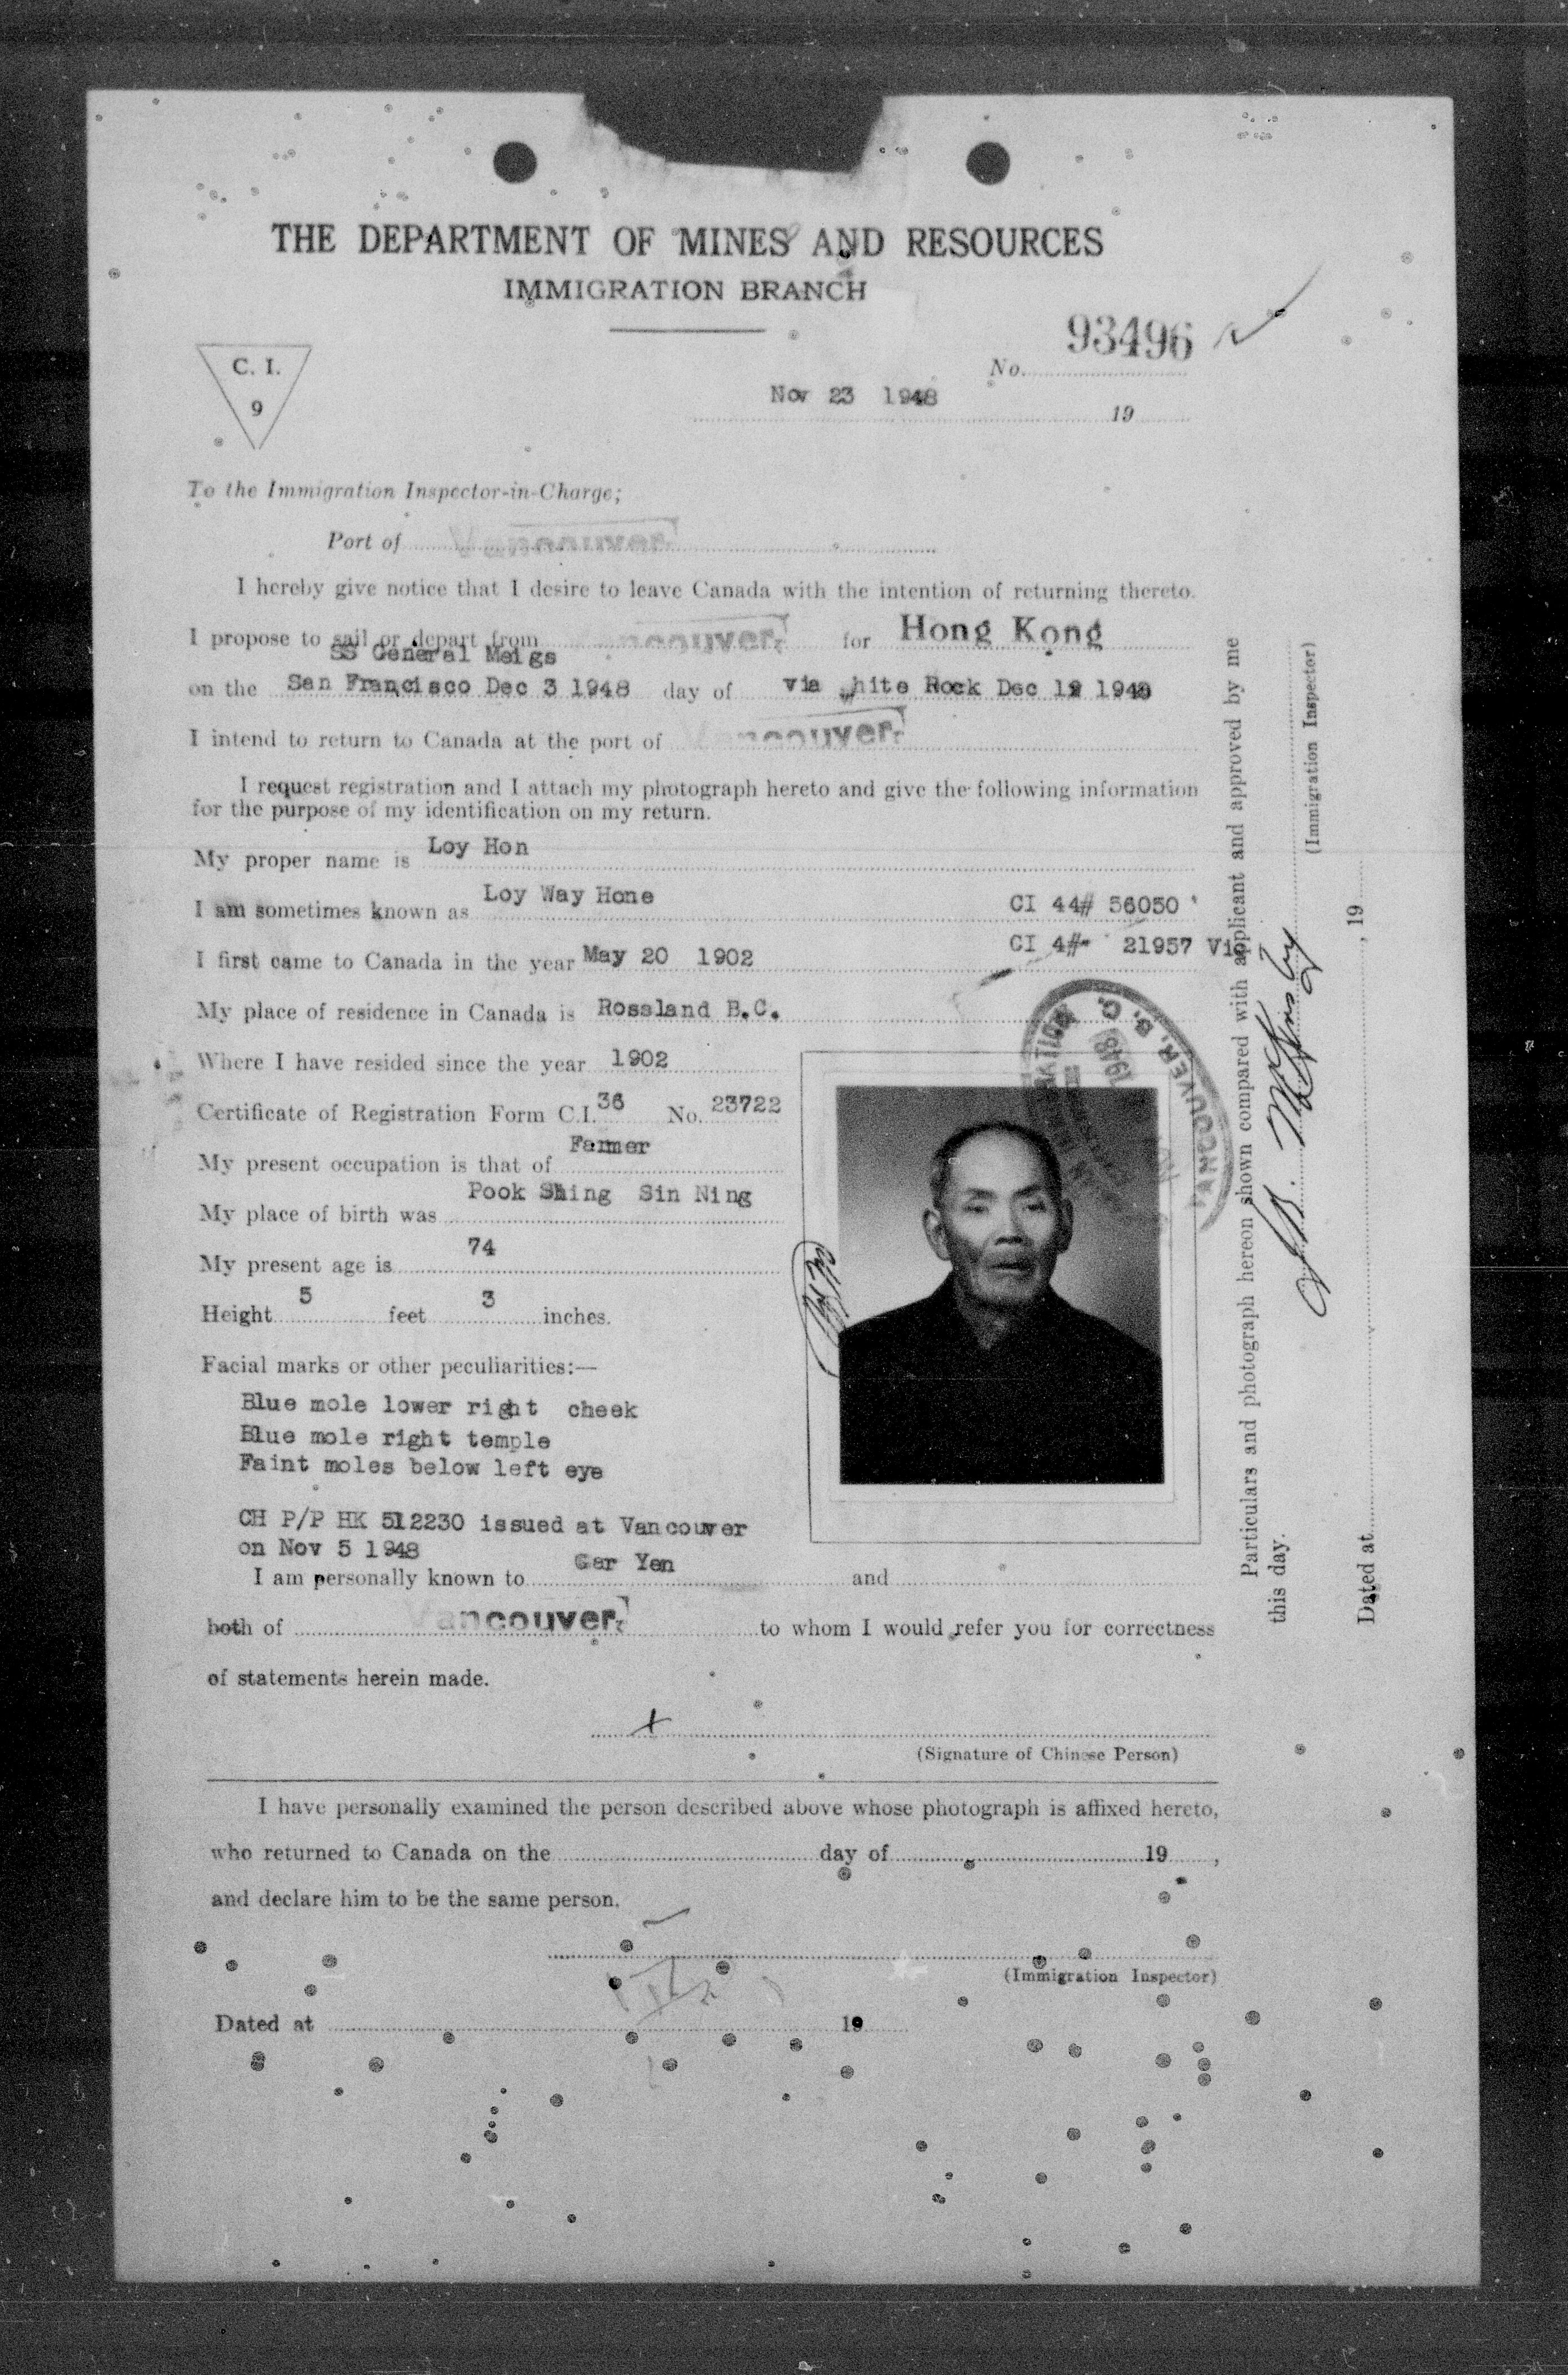 THE DEPARTMENT OF MINES AND RESOURCES
IMMIGRATION BRANCH
C. I.
9
No. 93496
Nov 23 1948 19
To the Immigration Inspector-in-Charge;
Port of Vancouver
I hereby give notice that I desire to leave Canada with the intention of returning thereto.
I propose to sail or depart from Vancouver. for Hong Kong
SS General Meigs
on the San Francisco Dec 3 1948 day of via hite Rock Dec 1948
I intend to return to Canada at the port of Vancouver.
I request registration and I attach my photograph hereto and give the following information
for the purpose of my identification on my return.
My proper name is Loy Hon
I am sometimes known as Loy Way Hone CI 44# 56050
I first came to Canada in the year May 20 1902 CI 4#- 21957 Vic
My place of residence in Canada is Rossland B.C.
Where I have resided since the year 1902
Certificate of Registration Form C.I. 36 No. 23722
My present occupation is that of Farmer
My place of birth was Pook Shing Sin Ning
My present age is 74
Height 5 feet 3 inches.
Facial marks or other peculiarities:—
Blue mole lower right cheek
Blue mole right temple
Faint moles below left eye
CH P/P HK 512230 issued at Vancouver
on Nov 5 1948
I am personally known to Gar Yen and
both of Vancouver. to whom I would refer you for correctness
of statements herein made.
x
(Signature of Chinese Person)
I have personally examined the person described above whose photograph is affixed hereto,
who returned to Canada on the day of 19 ,
and declare him to be the same person.
(Immigration Inspector)
Dated at 19
VANCOUVER, B. C.
1948
Particulars and photograph hereon shown compared with applicant and approved by me
this day.
(Immigration Inspector)
Dated at , 19